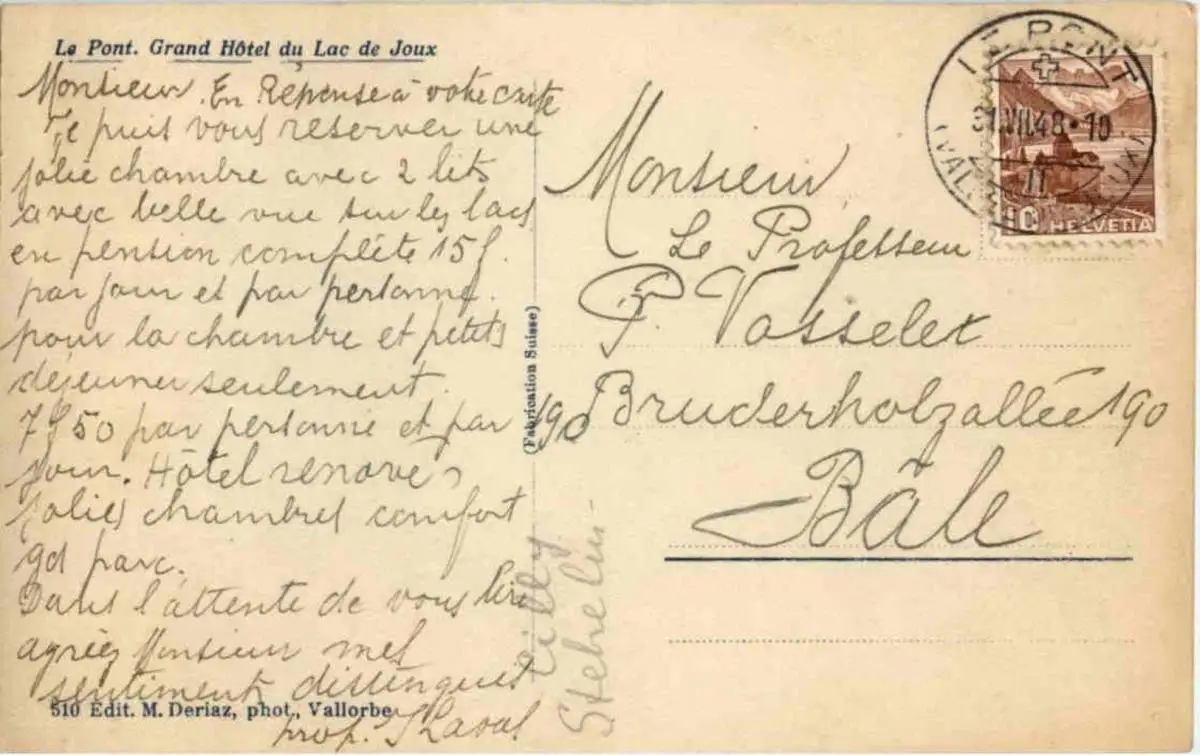 Le Pont. Grand Hôtel du Lac de Joux
Monsieur. En Réponse à votre carte
Je puis vous reserver une
jolie chambre avec 2 lits
avec belle vue sur les lacs
en pension complète 15f.
par jour et par personne.
pour la chambre et petits
dejeuner seulement.
7f50 par personne et par
jour. Hôtel renové
jolies chambres comfort
gd parc.
Dans l'attente de vous lire
agréez Monsieur mes
sentiments distingués
prop.
510 Edit. M. Deriaz, phot., Vallorbe
(Fabrication Suisse)
Cilly
Stehelin-
LE PONT
31.VII.48-10
II
10 HELVETIA
Monsieur
Le Professeur
P. Vosselet
190 Bruderholzallée 190
Bâle